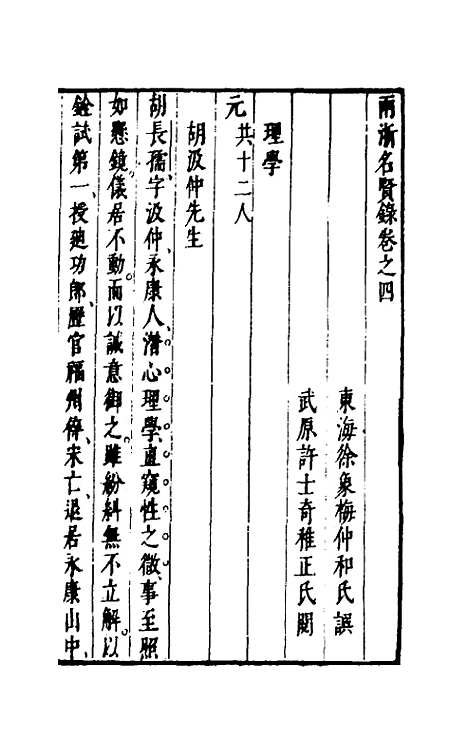 兩浙名賢錄卷之四
東海徐象梅仲和氏譔
武原許士奇稚正氏閱
理學
元共十二人
胡汲仲先生
胡長孺、字汲仲、永康人、潛心理學、直窺性之微、事至照
如懸鏡。儀居不動。而以誠意御之。雖紛糾無不立解。以
銓試第一、授廸功郎、歷官福州倅、宋亡、退居永康山中、